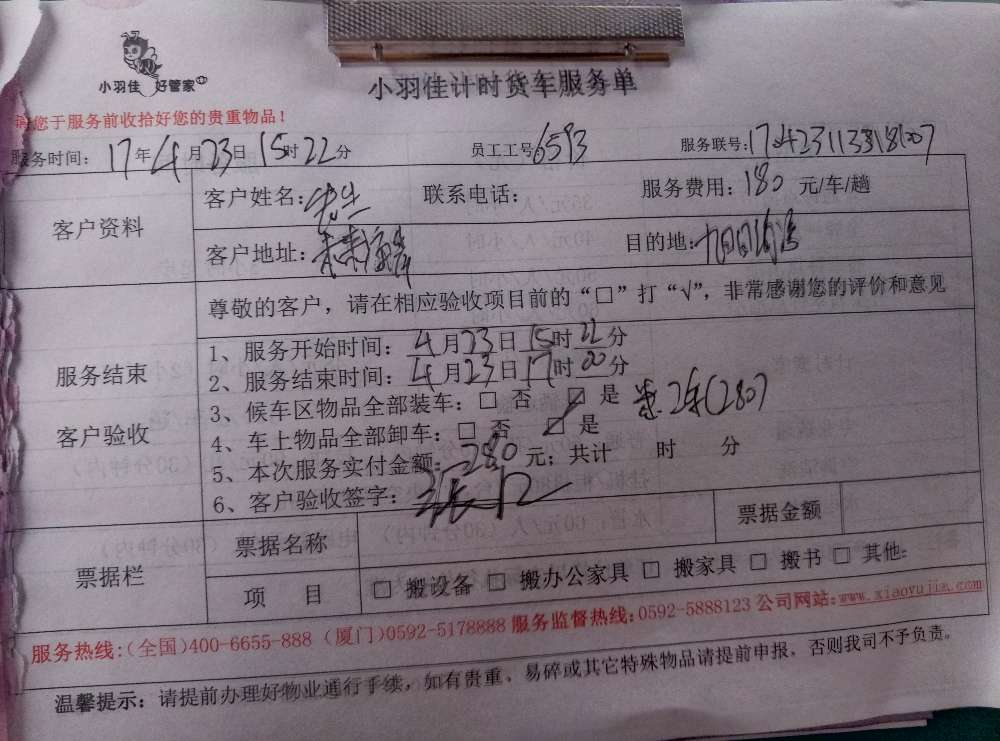 小羽佳 好管家
小羽佳计时货车服务单
请您于服务前收拾好您的贵重物品！
服务时间：17年4月23日15时22分 员工工号6593 服务联号：
客户资料
客户姓名： 联系电话： 服务费用：180 元/车/趟
客户地址： 目的地：
尊敬的客户，请在相应验收项目前的“□”打“√”，非常感谢您的评价和意见
服务结束
客户验收
1、服务开始时间：4月23日15时22分
2、服务结束时间：4月23日17时00分
3、候车区物品全部装车：□ 否 □ 是
4、车上物品全部卸车：□ 否 □ 是
5、本次服务实付金额：280元；共计 时 分
6、客户验收签字：
票据栏
票据名称 票据金额
项 目 □ 搬设备 □ 搬办公家具 □ 搬家具 □ 搬书 □ 其他：
服务热线：(全国)400-6655-888 (厦门)0592-5178888 服务监督热线：0592-5888123 公司网站：www.xiaoyujia.com
温馨提示：请提前办理好物业通行手续，如有贵重、易碎或其它特殊物品请提前申报，否则我司不予负责。